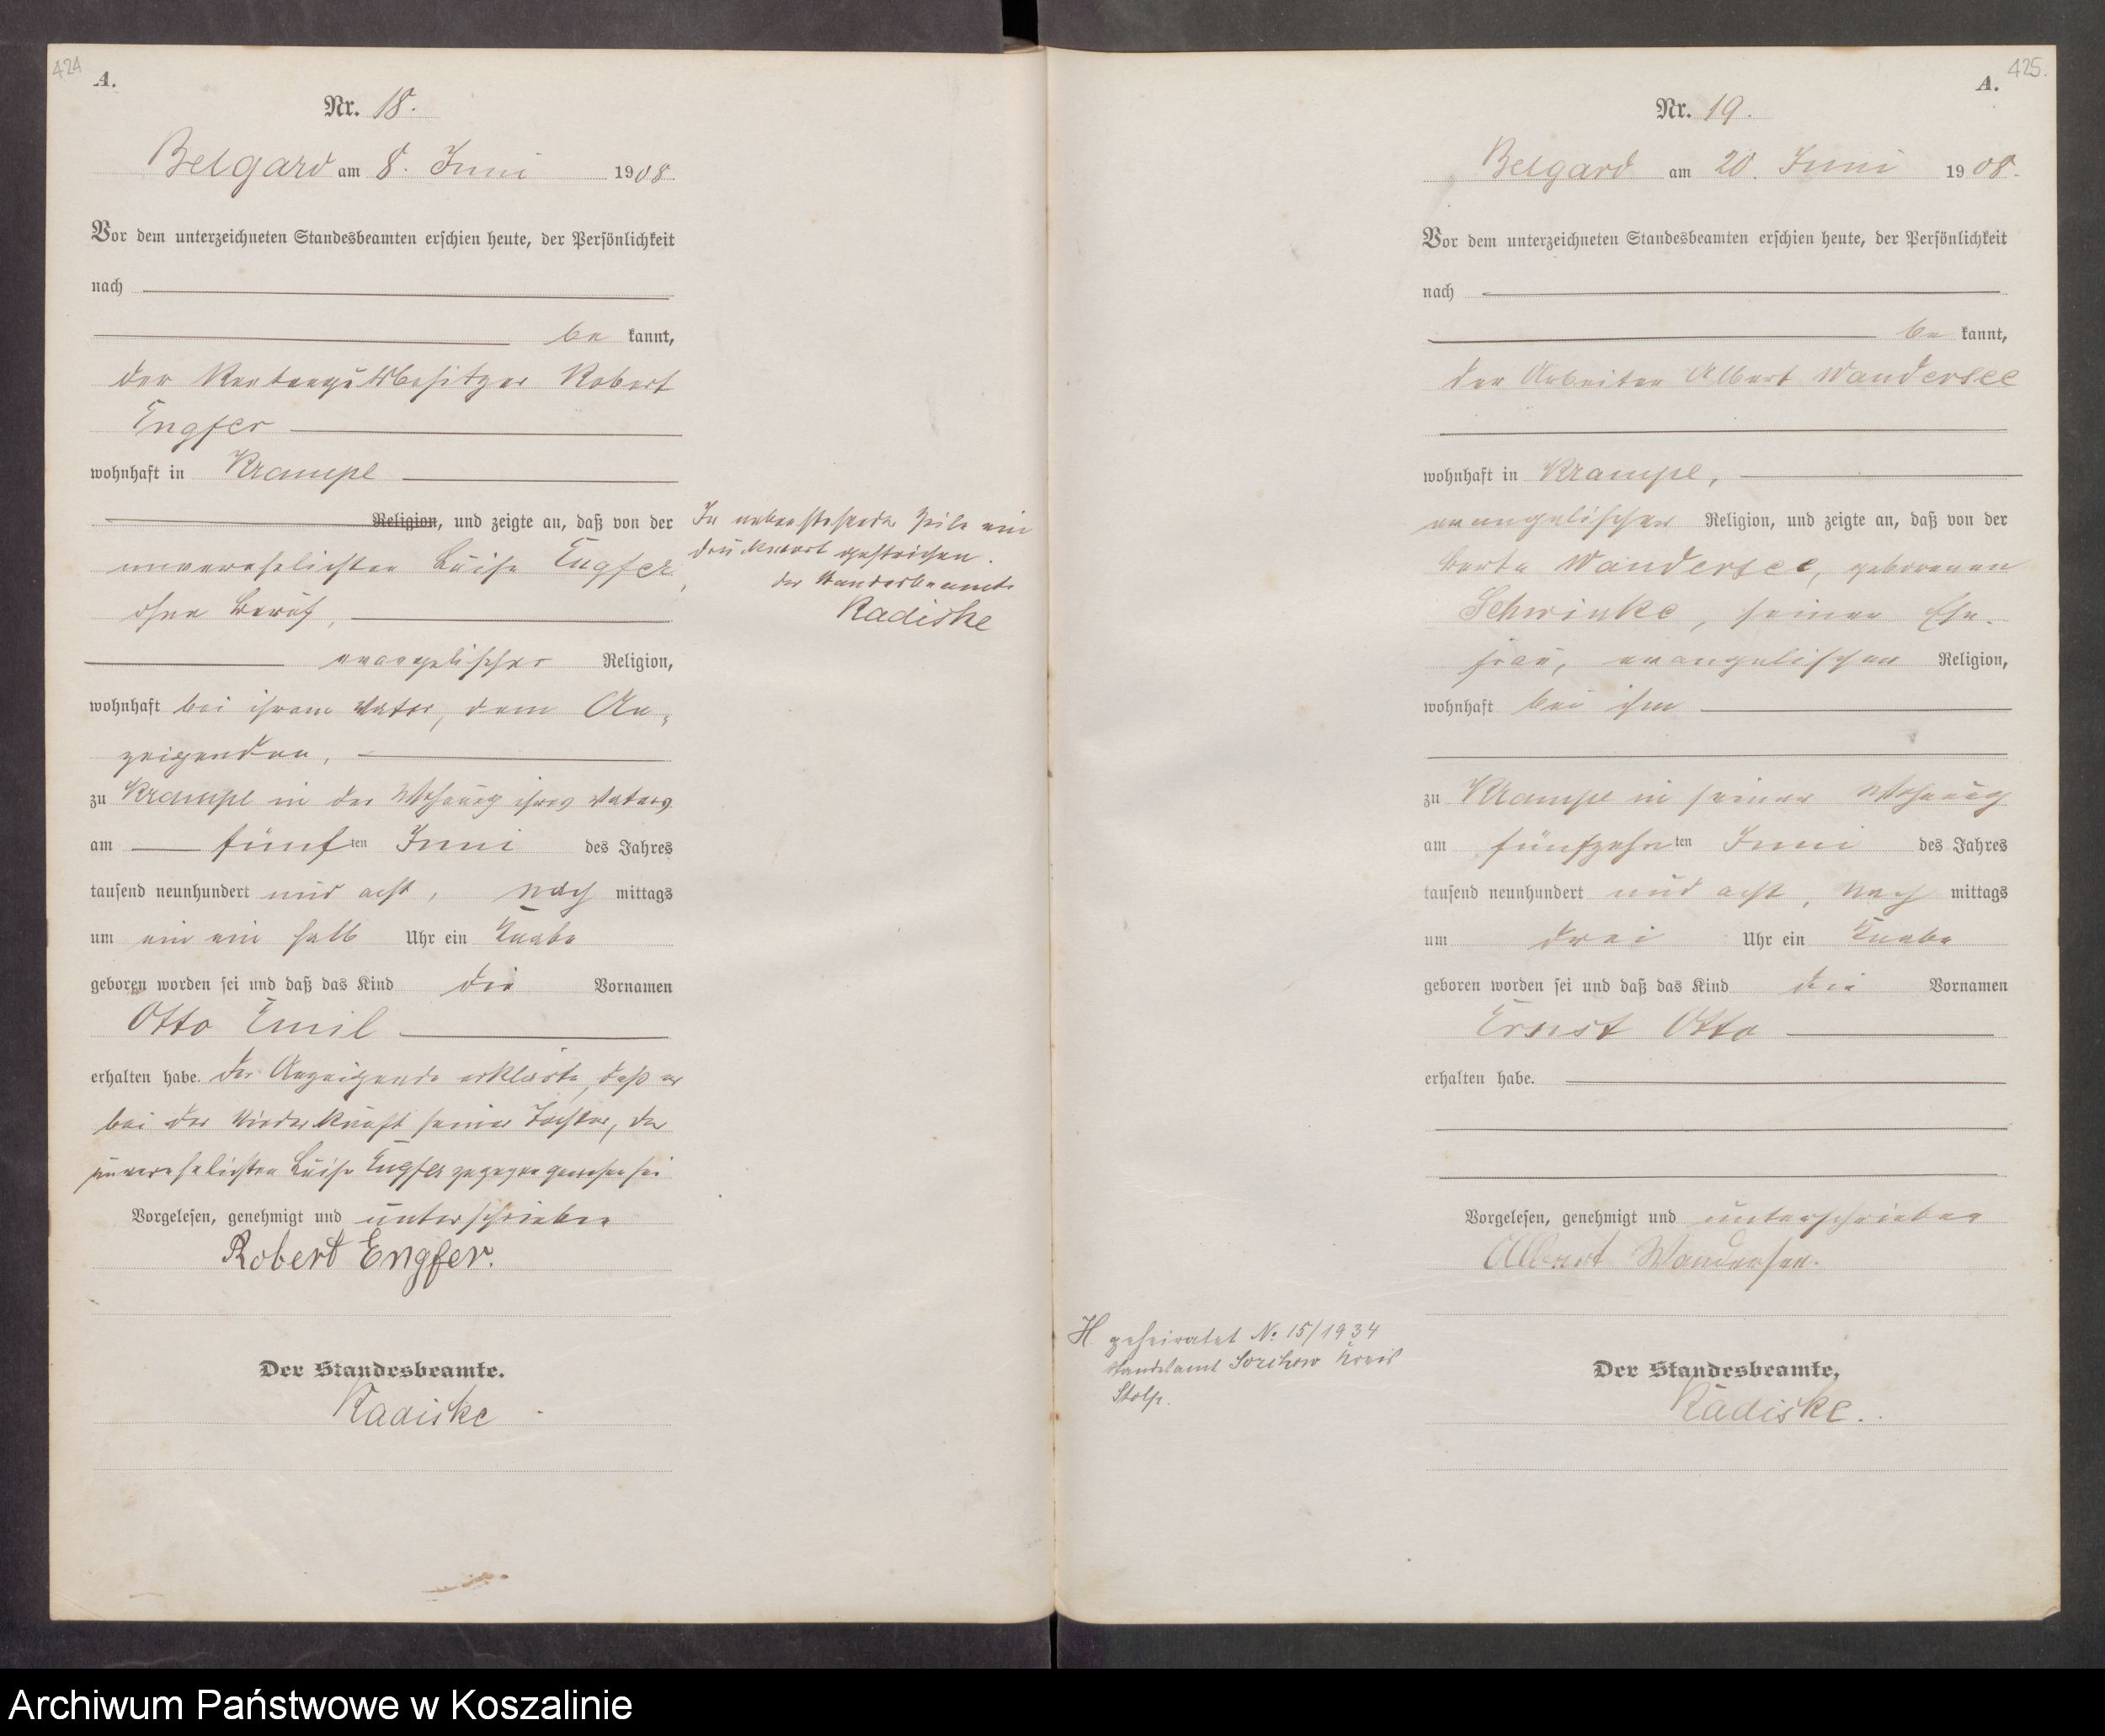 424
A.
Nr. 18.
Belgard am 8. Juni 1908.
Vor dem unterzeichneten Standesbeamten erschien heute, der Persönlichkeit
nach
be kannt,
der Rentengutsbesitzer Robert
Engfer
wohnhaft in Krampe
Religion, und zeigte an, daß von der
unverehelichten Luise Engfer,
ohne Beruf,
evangelischer Religion,
wohnhaft bei ihrem Vater, dem An-
zeigenden,
zu Krampe in der Wohnung ihres Vaters
am fünften Juni des Jahres
tausend neunhundert und acht, nach mittags
um ein ein halb Uhr ein Knabe
geboren worden sei und daß das Kind die Vornamen
Otto Emil
erhalten habe. Der Anzeigende erklärte, daß er
bei der Niederkunft seiner Tochter, der
unverehelichten Luise Engfer zugegen gewesen sei
Vorgelesen, genehmigt und unterschrieben
Robert Engfer.
Der Standesbeamte.
Radiske
In nebenstehender Zeile ein
Druckwort gestrichen.
Der Standesbeamte
Radiske
425.
A.
Nr. 19.
Belgard am 20. Juni 1908.
Vor dem unterzeichneten Standesbeamten erschien heute, der Persönlichkeit
nach
be kannt,
der Arbeiter Albert Wandersee
wohnhaft in Krampe,
evangelischer Religion, und zeigte an, daß von der
Berta Wandersee, geborenen
Schwinke, seiner Ehe-
frau, evangelischer Religion,
wohnhaft bei ihm
zu Krampe in seiner Wohnung
am fünfzehnten Juni des Jahres
tausend neunhundert und acht, nach mittags
um drei Uhr ein Knabe
geboren worden sei und daß das Kind die Vornamen
Ernst Otto
erhalten habe.
Vorgelesen, genehmigt und unterschrieben
Albert Wandersee.
Der Standesbeamte,
Radiske.
H geheiratet No 15/1934
Standesamt Sorchow Kreis
Stolp.
Archiwum Państwowe w Koszalinie